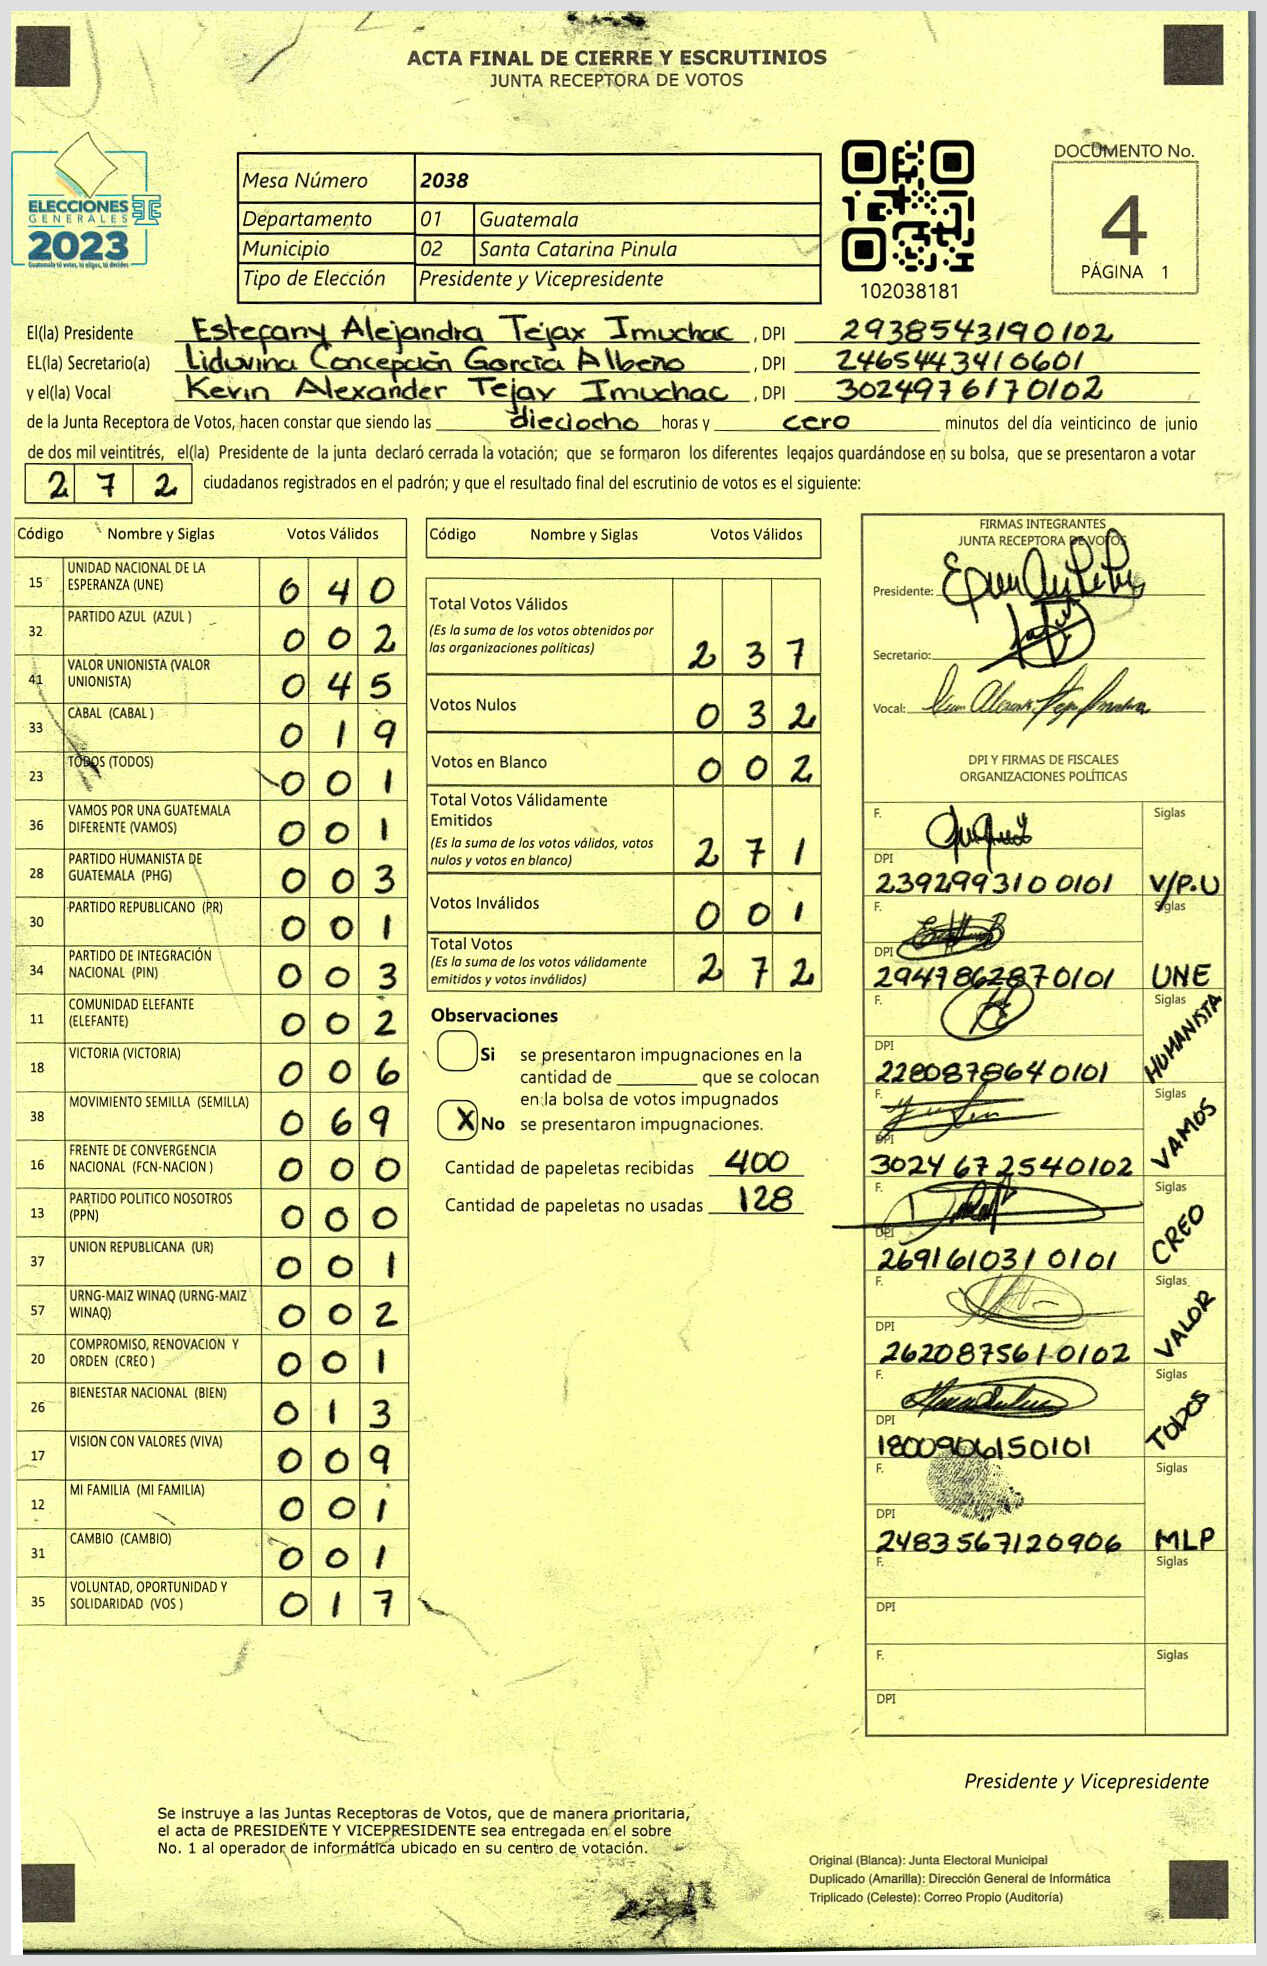 ACTA FINAL DE CIERRE Y ESCRUTINIOS
JUNTA RECEPTORA DE VOTOS
ELECCIONES
GENERALES
2023
Guatemala tú votas, tú eliges, tú decides
Mesa Número 2038
Departamento 01 Guatemala
Municipio 02 Santa Catarina Pinula
Tipo de Elección Presidente y Vicepresidente
102038181
DOCUMENTO No.
4
PÁGINA 1
El(la) Presidente Estefany Alejandra Tejax Imuchac, DPI 2938543190102
EL(la) Secretario(a) Liduvina Concepción García Albeño, DPI 2465443410601
y el(la) Vocal Kevin Alexander Tejax Imuchac, DPI 3024976170102
de la Junta Receptora de Votos, hacen constar que siendo las dieciocho horas y cero minutos del día veinticinco de junio
de dos mil veintitrés, el(la) Presidente de la junta declaró cerrada la votación; que se formaron los diferentes legajos guardándose en su bolsa, que se presentaron a votar
2 7 2 ciudadanos registrados en el padrón; y que el resultado final del escrutinio de votos es el siguiente:
Código Nombre y Siglas Votos Válidos
15 UNIDAD NACIONAL DE LA
ESPERANZA (UNE) 0 4 0
32 PARTIDO AZUL (AZUL ) 0 0 2
41 VALOR UNIONISTA (VALOR
UNIONISTA) 0 4 5
33 CABAL (CABAL ) 0 1 9
23 TODOS (TODOS) 0 0 1
36 VAMOS POR UNA GUATEMALA
DIFERENTE (VAMOS) 0 0 1
28 PARTIDO HUMANISTA DE
GUATEMALA (PHG) 0 0 3
30 PARTIDO REPUBLICANO (PR) 0 0 1
34 PARTIDO DE INTEGRACIÓN
NACIONAL (PIN) 0 0 3
11 COMUNIDAD ELEFANTE
(ELEFANTE) 0 0 2
18 VICTORIA (VICTORIA) 0 0 6
38 MOVIMIENTO SEMILLA (SEMILLA) 0 6 9
16 FRENTE DE CONVERGENCIA
NACIONAL (FCN-NACION ) 0 0 0
13 PARTIDO POLITICO NOSOTROS
(PPN) 0 0 0
37 UNION REPUBLICANA (UR) 0 0 1
57 URNG-MAIZ WINAQ (URNG-MAIZ
WINAQ) 0 0 2
20 COMPROMISO, RENOVACION Y
ORDEN (CREO ) 0 0 1
26 BIENESTAR NACIONAL (BIEN) 0 1 3
17 VISION CON VALORES (VIVA) 0 0 9
12 MI FAMILIA (MI FAMILIA) 0 0 1
31 CAMBIO (CAMBIO) 0 0 1
35 VOLUNTAD, OPORTUNIDAD Y
SOLIDARIDAD (VOS ) 0 1 7
Código Nombre y Siglas Votos Válidos
Total Votos Válidos
(Es la suma de los votos obtenidos por
las organizaciones politicas) 2 3 7
Votos Nulos 0 3 2
Votos en Blanco 0 0 2
Total Votos Válidamente
Emitidos
(Es la suma de los votos válidos, votos
nulos y votos en blanco) 2 7 1
Votos Inválidos 0 0 1
Total Votos
(Es la suma de los votos válidamente
emitidos y votos inválidos) 2 7 2
Observaciones
Si se presentaron impugnaciones en la
cantidad de ________ que se colocan
en la bolsa de votos impugnados
X No se presentaron impugnaciones.
Cantidad de papeletas recibidas 400
Cantidad de papeletas no usadas 128
FIRMAS INTEGRANTES
JUNTA RECEPTORA DE VOTOS
Presidente:
Secretario:
Vocal:
DPI Y FIRMAS DE FISCALES
ORGANIZACIONES POLÍTICAS
F. Siglas
DPI
2392993100101 V/P.U
F. Siglas
DPI
2947862870101 UNE
F. Siglas
DPI
2280878640101 HUMANISTA
F. Siglas
DPI
3024672540102 VAMOS
F. Siglas
DPI
2691610310101 CREO
F. Siglas
DPI
2620875610102 VALOR
F. Siglas
DPI
1800906150101 TODOS
F. Siglas
DPI
2483567120906 MLP
F. Siglas
DPI
F. Siglas
DPI
Presidente y Vicepresidente
Se instruye a las Juntas Receptoras de Votos, que de manera prioritaria,
el acta de PRESIDENTE Y VICEPRESIDENTE sea entregada en el sobre
No. 1 al operador de informática ubicado en su centro de votación.
Original (Blanca): Junta Electoral Municipal
Duplicado (Amarilla): Dirección General de Informática
Triplicado (Celeste): Correo Propio (Auditoría)